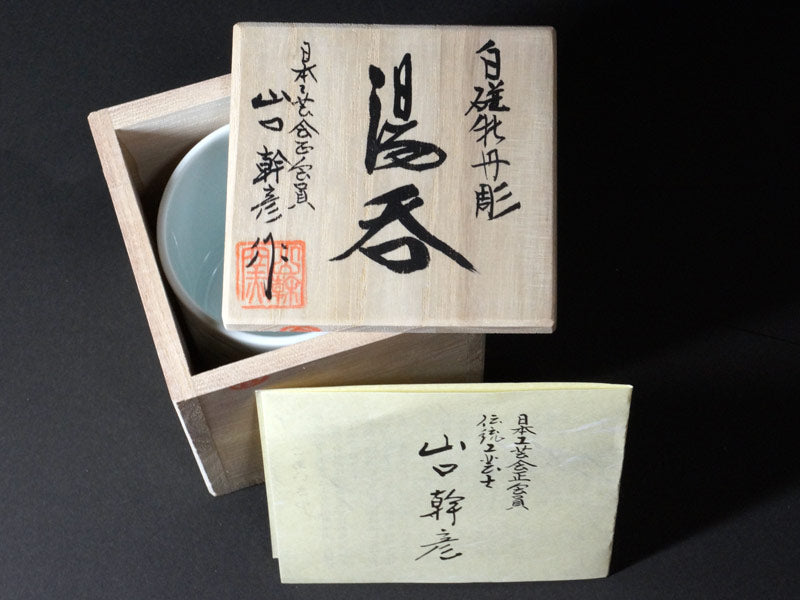 白磁牡丹彫
湯呑
日本工芸会正会員
山口幹彦作
日本工芸会正会員
伝統工芸士
山口幹彦